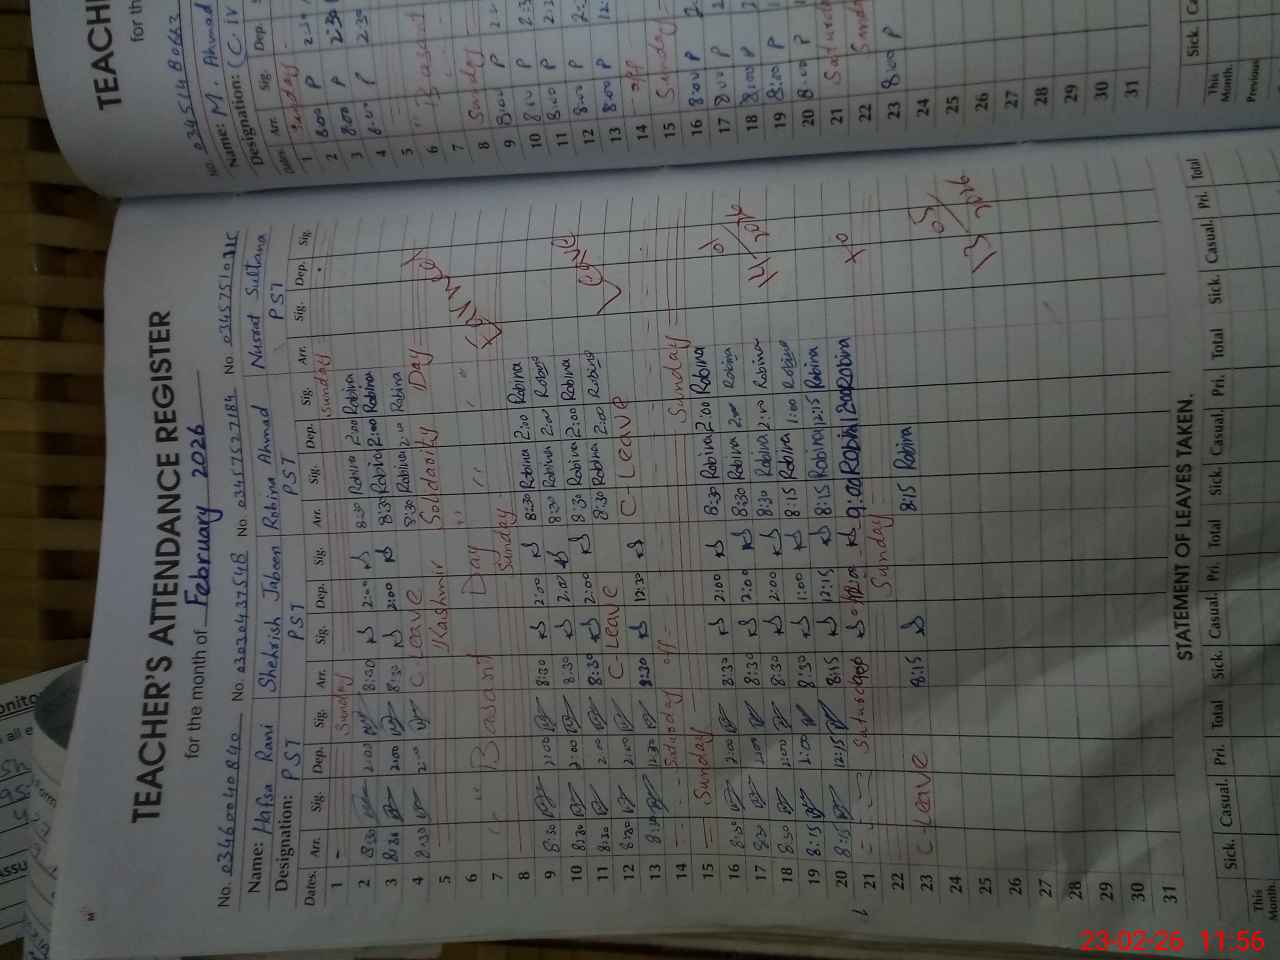 TEACHER'S ATTENDANCE REGISTER
for the month of February 2026
No. 03460040840 No. 03030437548 No. 03457527184 No. 03457510315
Name: Hafsa Rani Shehrish Jabeen Robina Ahmad Nusrat Sultana
Designation: PST PST PST PST
Dates. Arr. Sig. Dep. Sig. Arr. Sig. Dep. Sig. Arr. Sig. Dep. Sig. Arr. Sig. Dep. Sig.
1 - Sunday Sunday
2 8:30 2:00 8:30 2:00 8:30 Robina 2:00 Robina
3 8:30 2:00 8:30 2:00 8:30 Robina 2:00 Robina
4 8:30 2:00 C-Leave 8:30 Robina 2:00 Robina
5 Kashmir Solidarity Day
6 Basant Day
7
8 Sunday
9 8:30 2:00 8:30 2:00 8:30 Robina 2:00 Robina
10 8:30 2:00 8:30 2:00 8:30 Robina 2:00 Robina
11 8:30 2:00 8:30 2:00 8:30 Robina 2:00 Robina
12 8:30 2:00 C-Leave 8:30 Robina 2:00 Robina
13 8:30 12:30 8:30 12:30 C-Leave
14 Saturday off
15 Sunday Sunday
16 8:30 2:00 8:30 2:00 8:30 Robina 2:00 Robina
17 8:30 2:00 8:30 2:00 8:30 Robina 2:00 Robina
18 8:30 2:00 8:30 2:00 8:30 Robina 2:00 Robina
19 8:15 1:00 8:30 1:00 8:15 Robina 1:00 Robina
20 8:15 12:15 8:15 12:15 8:15 Robina 12:15 Robina
21 Saturday 9:00 Robina 2:00 Robina
22 Sunday
23 C-Leave 8:15 8:15 Robina
24
25
26
27
28
29
30
31
Leave
to
2026
STATEMENT OF LEAVES TAKEN.
Sick. Casual. Pri. Total Sick. Casual. Pri. Total Sick. Casual. Pri. Total Sick. Casual. Pri. Total
This Month.
TEACHE
for the
No. 03451480663
Name: M. Ahmad
Designation: (Civ
Dates. Arr. Sig. Dep.
1 Sunday
2 8:00 P 2:30
3 8:00 P 2:30
4 8:00 P 2:30
5
6 Basant
7
8 Sunday
9 8:00 P
10 8:00 P
11 8:00 P
12 8:00 P
13 8:00 P
14 off
15 Sunday
16 8:00 P
17 8:00 P
18 8:00 P
19 8:00 P
20 8:00 P
21
22
23 8:00 P
24
25
26
27
28
29
30
31
Sick. Ca
This Month.
Previous
23-02-26 11:56